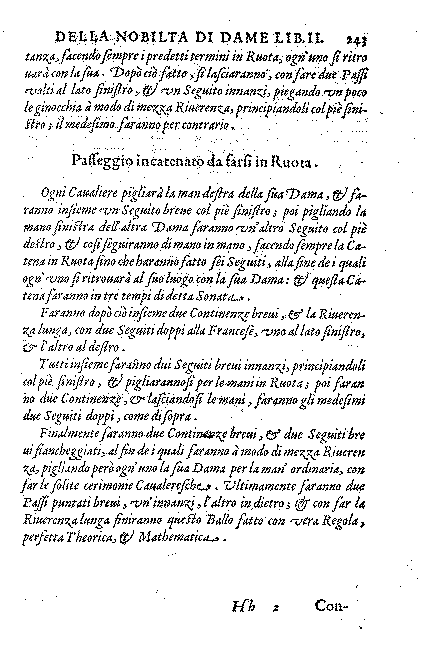 DELLA NOBILTA DI DAME LIB.II. 243
tanza, facendo sempre i predetti termini in Ruota, ogn'uno si ritro
uarà con la sua. Dopò ciò fatto, si lasciaranno, con fare due Passi
volti al lato sinistro, & vn Seguito innanzi, piegando vn poco
le ginocchia à modo di mezza Riuerenza, principiandoli col piè sini-
stro; il medesimo faranno per contrario.
Passeggio incatenato da farsi in Ruota.
Ogni Caualiere pigliarà la man destra della sua Dama, & fa-
ranno insieme vn Seguito breue col piè sinistro; poi pigliando la
mano sinistra dell'altra Dama faranno vn'altro Seguito col piè
destro, & così seguiranno di mano in mano, facendo sempre la Ca-
tena in Ruota sino che haranno fatto sei Seguiti, alla fine de i quali
ogn'vno si ritrouarà al suo luogo con la sua Dama: & questa Ca-
tena faranno in tre tempi di detta Sonata.
Faranno dopò ciò insieme due Continenze breui, & la Riueren-
za lunga, con due Seguiti doppi alla Francese, vno al lato sinistro,
& l'altro al destro.
Tutti insieme faranno dui Seguiti breui innanzi, principiandoli
col piè sinistro, & pigliarannosi per le mani in Ruota; poi faran
no due Continenze, & lasciandosi le mani, faranno gli medesimi
due Seguiti doppi, come di sopra.
Finalmente faranno due Continenze breui, & due Seguiti bre
ui fiancheggiati, al fin de i quali faranno à modo di mezza Riueren
za, pigliando però ogn'uno la sua Dama per la man' ordinaria, con
far le solite cerimonie Caualeresche. Vltimamente faranno due
Passi puntati breui, vn'innanzi, l'altro in dietro; & con far la
Riuerenza lunga finiranno questo Ballo fatto con vera Regola,
perfetta Theorica, & Mathematica.
Hh 2 Con-